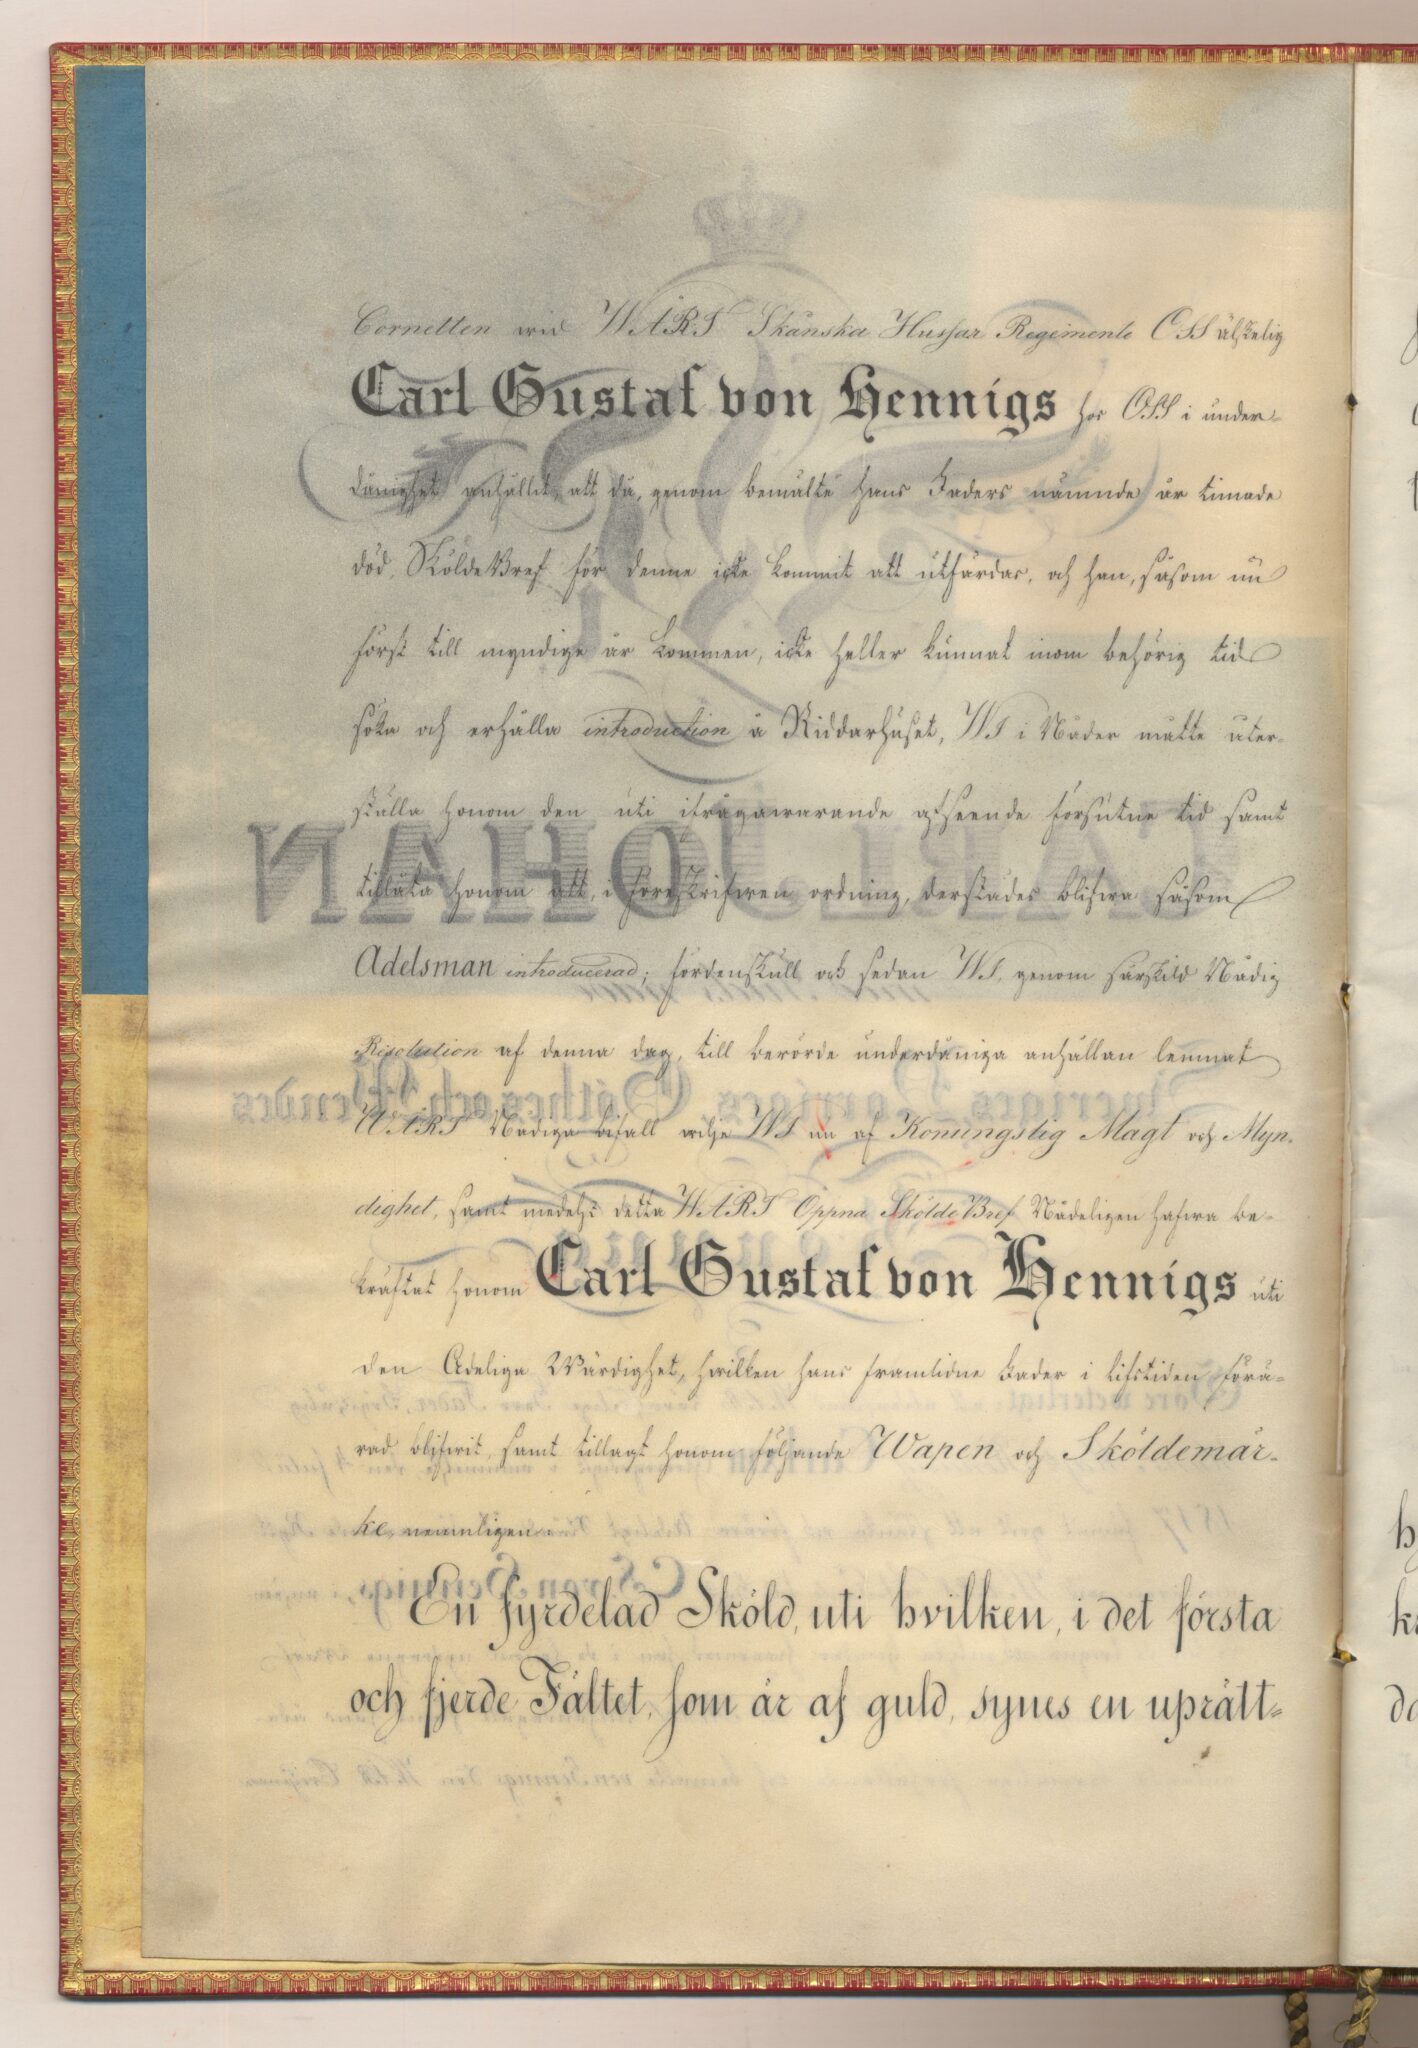 Cornetten wid WÅRT Skånska Hussar Regimente OSS älskelig
Carl Gustaf von Hennigs hos OSS i under-
dånighet anhållit, att då, genom bemälte hans Faders nämnde år timade
död, SköldeBref för denne icke kommit att utfärdas, och han, såsom nu
först till myndige år kommen, icke heller kunnat inom behörig tid
söka och erhålla introduction å Riddarhuset, WI i Nåder måtte åter-
ställa honom den uti ifrågawarande afseende försutne tid samt
tillåta honom att, i föreskrifwen ordning, derstädes blifwa såsom
Adelsman introducerad; fördenskull och sedan WI, genom särskild Nådig
Resolution af denna dag, till berörde underdåniga anhållan lemnat
WÅRT Nådiga bifall wilje WI nu af Konungslig Magt och Myn-
dighet, samt medelst detta WÅRT Öppna SköldeBref Nådeligen hafwa be-
kräftat honom Carl Gustaf von Hennigs uti
den Adeliga Wärdighet, hwilken hans framlidne Fader i lifstiden förä-
rad blifwit, samt tillagt honom följande Wapen och Sköldemär-
ke, nemnligen:
En fyrdelad Sköld, uti hvilken, i det första
och fjerde Fältet, som är af guld, synes en uprätt-
CARL JOHAN
Sveriges Norriges Göthes och Wendes